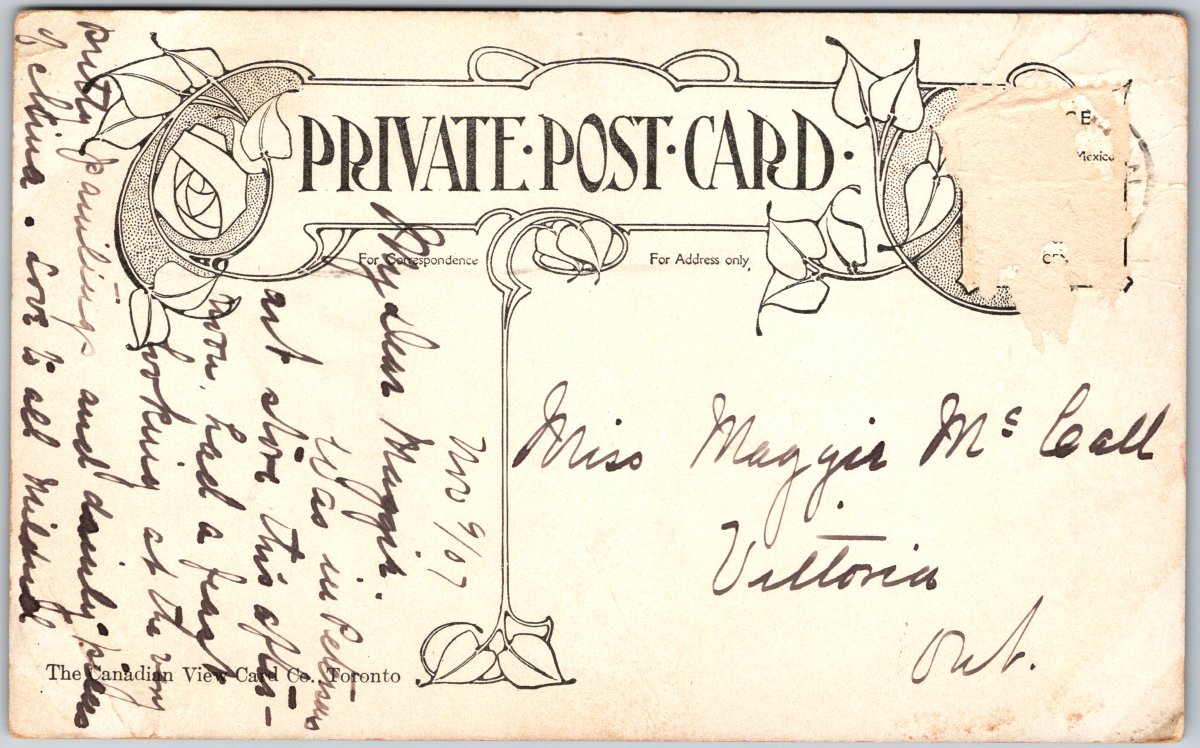 PRIVATE·POST·CARD·
CE
Mexico
CEN
For Correspondence
For Address only,
Nov 9/07
My dear Maggie.
Was in Petersons
art store this after-
noon, had a feast
looking at the very
pretty paintings and dainty pieces
of china. Love to all Mildred
Miss Maggie McCall
Vittoria
Ont.
The Canadian View Card Co., Toronto